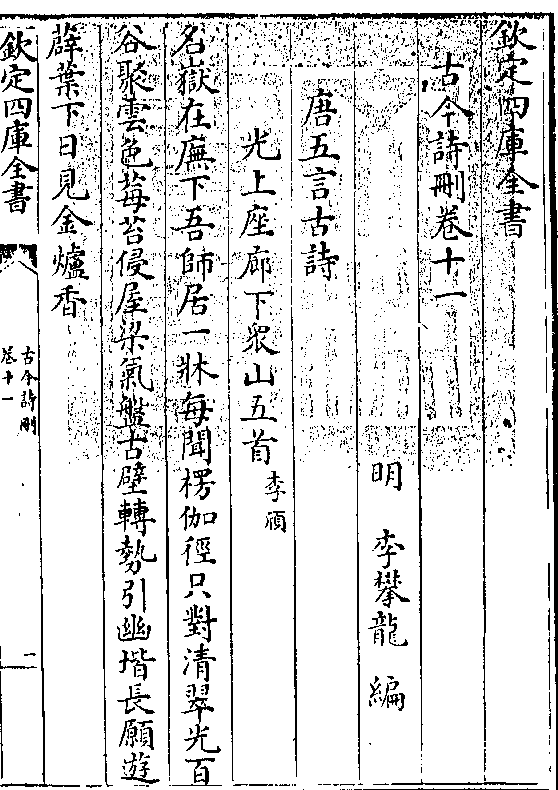 欽定四庫全書
古今詩刪卷十一
明 李攀龍 編
唐五言古詩
光上座廊下衆山五首 李頎
名嶽在廡下吾師居一牀每聞楞伽徑只對清翠光百
谷聚雲色莓苔侵屋梁氣盤古壁轉勢引幽堦長願遊
薜葉下日見金爐香
欽定四庫全書
古今詩刪
卷十一
一